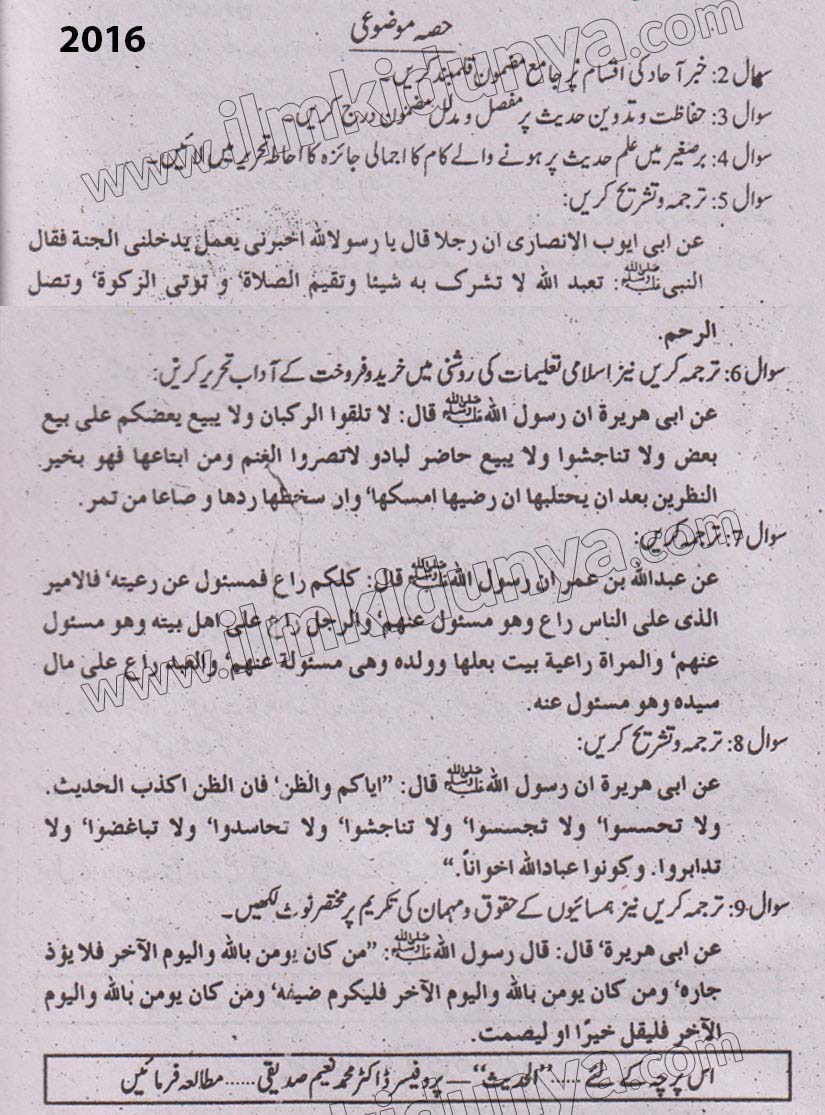 2016
حصہ موضوعی
سوال 2: خبر آحاد کی اقسام پر جامع مضمون قلمبند کریں۔
سوال 3: حفاظت و تدوین حدیث پر مفصل و مدلل مضمون درج کریں۔
سوال 4: برصغیر میں علم حدیث پر ہونے والے کام کا اجمالی جائزہ کا احاطہ تحریر میں لائیں۔
سوال 5: ترجمہ و تشریح کریں:
عن ابی ایوب الانصاری ان رجلا قال یا رسول اللہ اخبرنی یعمل یدخلنی الجنة فقال
النبی ﷺ: تعبد اللہ لا تشرک به شیئا وتقیم الصلاة‘ و توتی الزکوة‘ وتصل
الرحم.
سوال 6: ترجمہ کریں نیز اسلامی تعلیمات کی روشنی میں خرید و فروخت کے آداب تحریر کریں:
عن ابی هریرة ان رسول اللہ ﷺ قال: لا تلقوا الرکبان ولا یبیع بعضکم علی بیع
بعض ولا تناجشوا ولا یبیع حاضر لبادو لاتصروا الغنم ومن ابتاعها فهو بخیر
النظرین بعد ان یحتلبها ان رضیها امسکها‘ وار سخطها ردها و صاعا من تمر.
سوال 7: ترجمہ کریں:
عن عبداللہ بن عمر ان رسول اللہ ﷺ قال: کلکم راع فمسئول عن رعیته‘ فالامیر
الذی علی الناس راع وهو مسئول عنهم‘ والرجل راع علی اهل بیته وهو مسئول
عنهم‘ والمراة راعیة بیت بعلها وولده وهی مسئولة عنهم‘ والعبد راع علی مال
سیده وهو مسئول عنه.
سوال 8: ترجمہ و تشریح کریں:
عن ابی هریرة ان رسول اللہ ﷺ قال: ”ایاکم والظن‘ فان الظن اکذب الحدیث.
ولا تحسسوا‘ ولا تجسسوا‘ ولا تناجشوا‘ ولا تحاسدوا‘ ولا تباغضوا‘ ولا
تدابروا. وکونوا عباداللہ اخواناً.“
سوال 9: ترجمہ کریں نیز ہمسائیوں کے حقوق و مہمان کی تکریم پر مختصر نوٹ لکھیں۔
عن ابی هریرة‘ قال: قال رسول اللہ ﷺ: ”من کان یومن باللہ والیوم الآخر فلا یؤذ
جاره‘ ومن کان یومن باللہ والیوم الآخر فلیکرم ضیفه‘ ومن کان یومن باللہ والیوم
الآخر فلیقل خیرًا او لیصمت.
اس پرچہ کے لئے ..... ”الحدیث“ — پروفیسر ڈاکٹر محمد نعیم صدیقی ...... مطالعہ فرمائیں
www.ilmkidunya.com
www.ilmkidunya.com
www.ilmkidunya.com